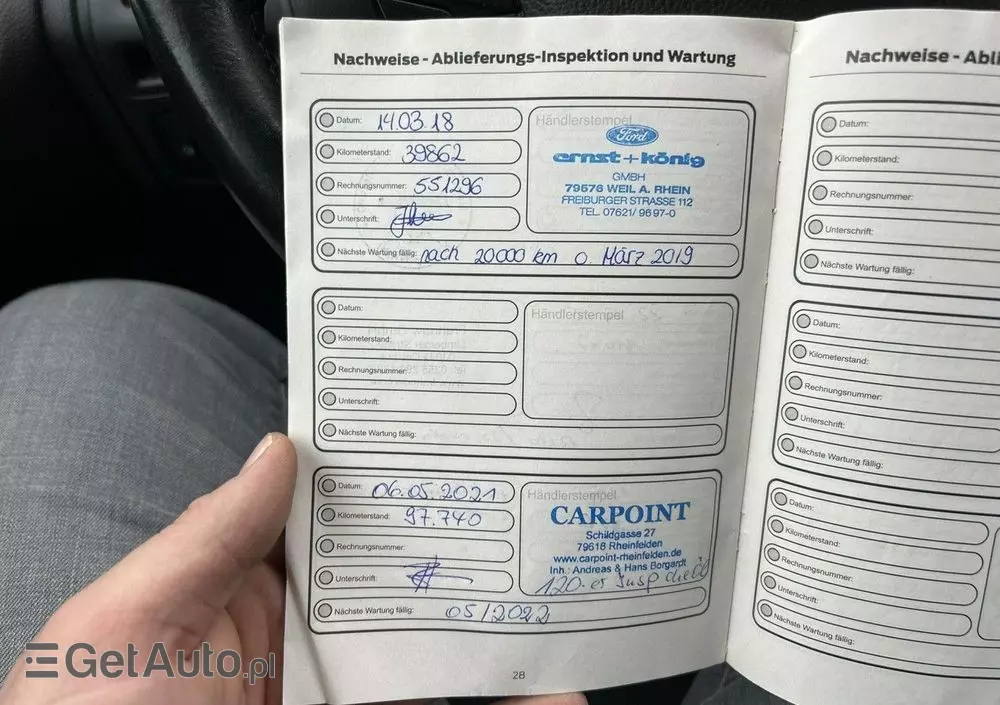 Nachweise - Ablieferungs-Inspektion und Wartung
Datum: 14.03.18
Kilometerstand: 39862
Rechnungsnummer: 551296
Unterschrift:
Nächste Wartung fällig: nach 20000 km o. März 2019
Händlerstempel
Ford
ernst+könig
GMBH
79576 WEIL A. RHEIN
FREIBURGER STRASSE 112
TEL. 07621/ 96 97-0
Datum:
Kilometerstand:
Rechnungsnummer:
Unterschrift:
Nächste Wartung fällig:
Händlerstempel
Datum: 06.05.2021
Kilometerstand: 97.740
Rechnungsnummer:
Unterschrift:
Nächste Wartung fällig: 05/2022
Händlerstempel
CARPOINT
Schildgasse 27
79618 Rheinfelden
www.carpoint-rheinfelden.de
Inh.: Andreas & Hans Borgardt
120-er Insp check
28
Nachweise - Abli
Datum:
Kilometerstand:
Rechnungsnummer:
Unterschrift:
Nächste Wartung fällig:
Datum:
Kilometerstand:
Rechnungsnummer:
Unterschrift:
Nächste Wartung fällig:
Datum:
Kilometerstand:
Rechnungsnummer:
Unterschrift:
Nächste Wartung fällig:
GetAuto.pl